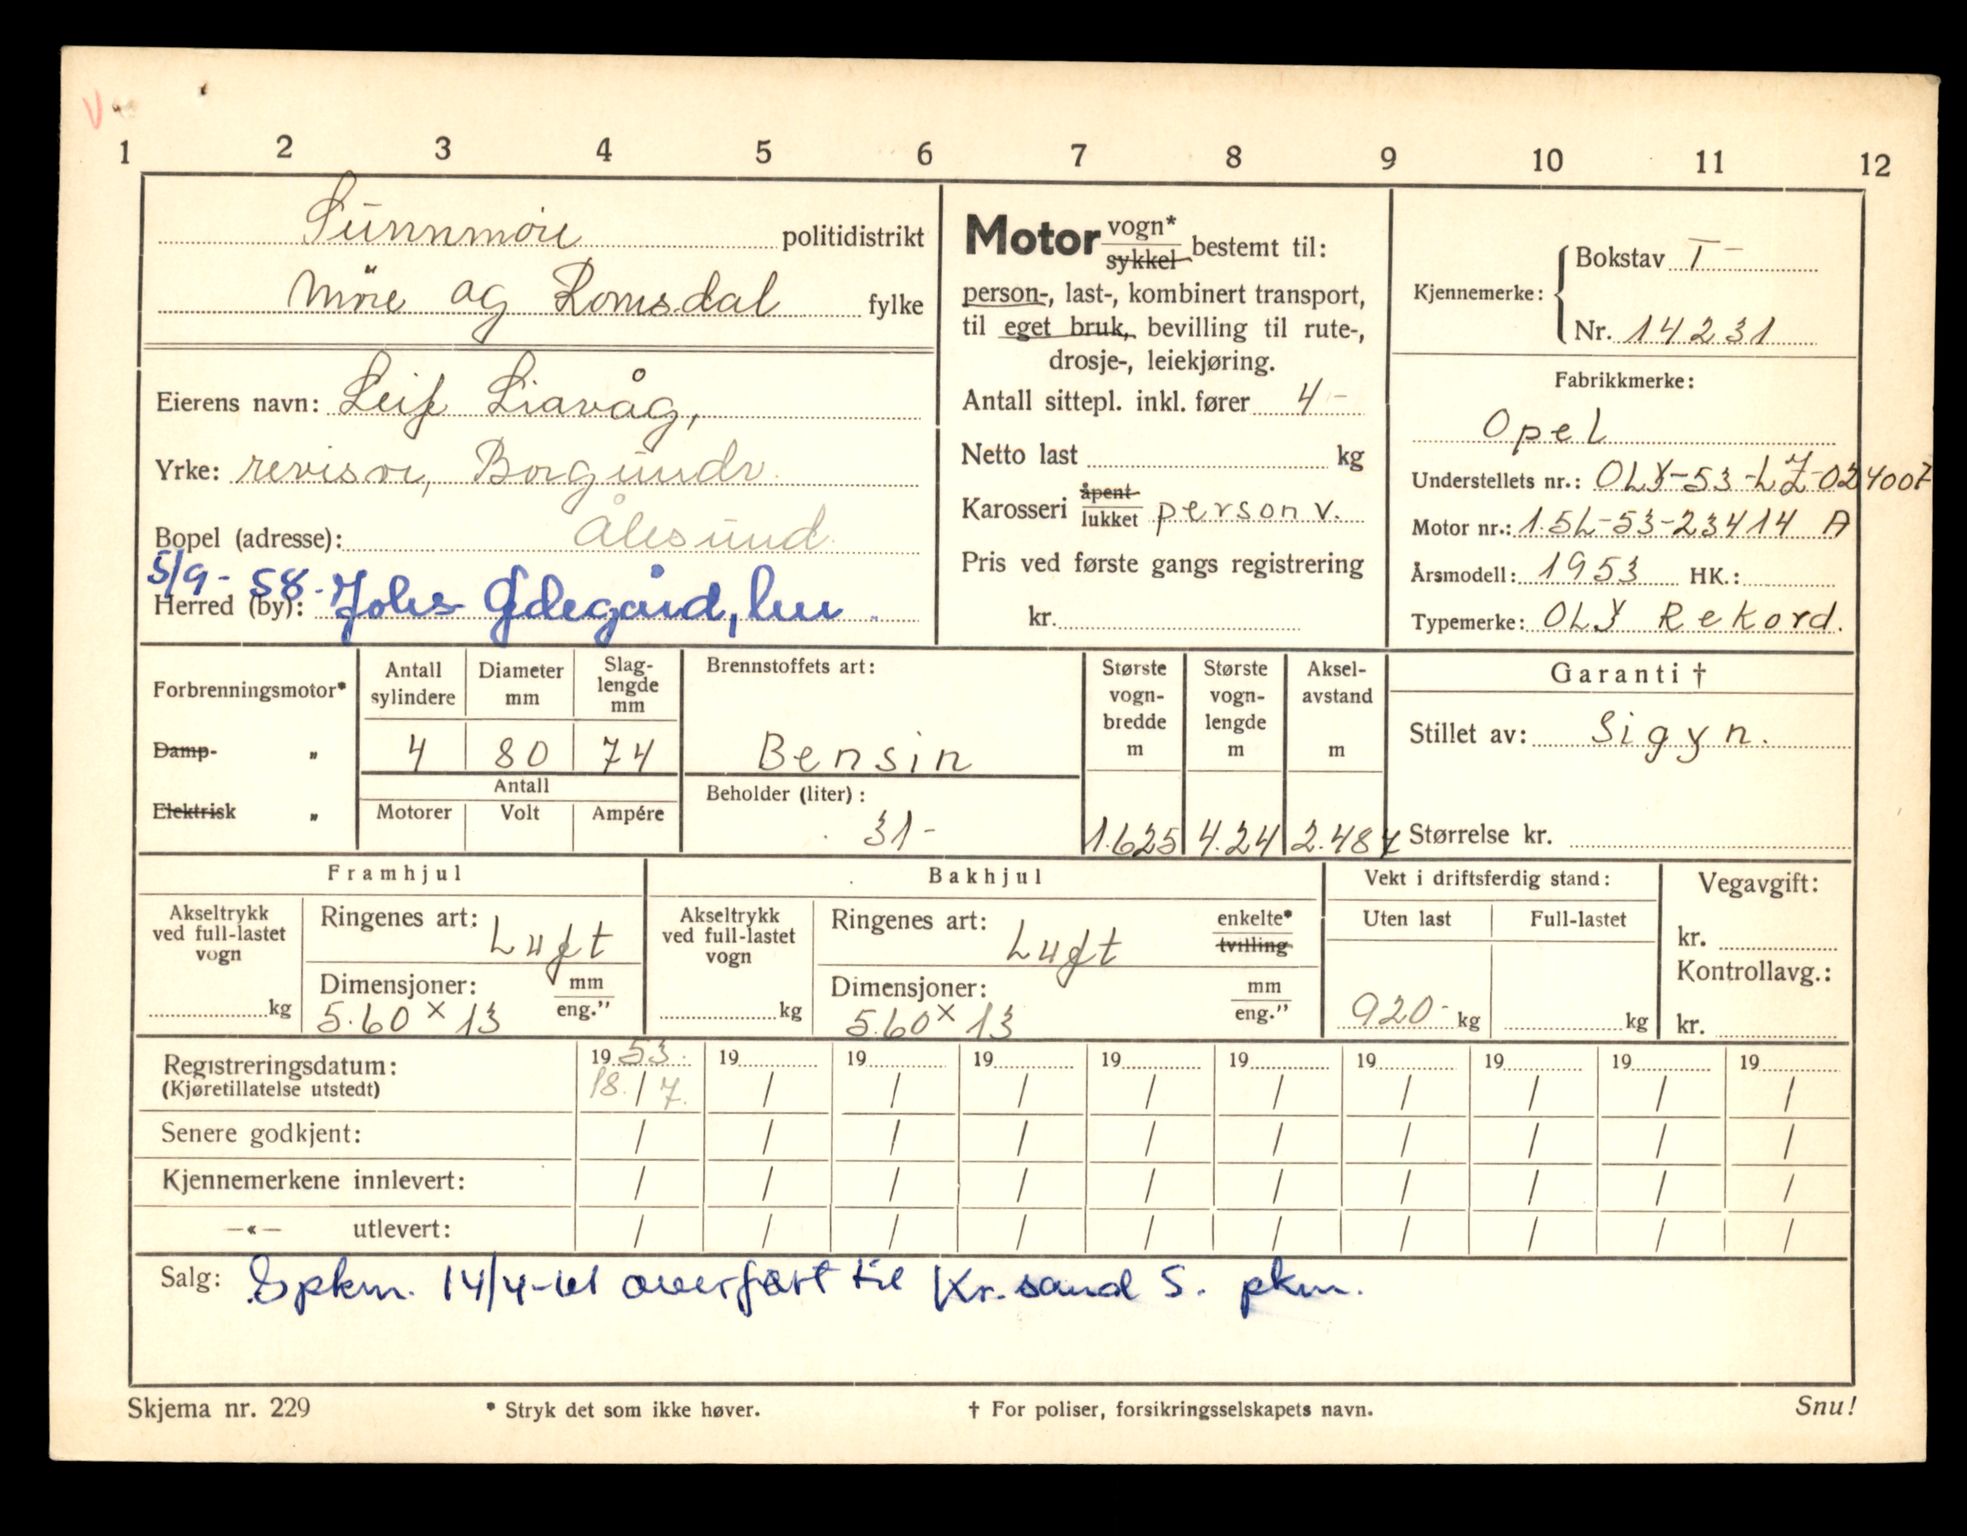 V
1 2 3 4 5 6 7 8 9 10 11 12
Sunnmöre politidistrikt
Möre og Romsdal fylke
Eierens navn: Leif Liavåg,
Yrke: revisor, Borgundv.
Bopel (adresse): Ålesund
5/9-58. Johs Ødegård, her.
Herred (by):
Motor vogn* sykkel bestemt til:
person-, last-, kombinert transport,
til eget bruk, bevilling til rute-,
drosje-, leiekjøring.
Antall sittepl. inkl. fører 4-
Netto last kg
Karosseri åpent lukket person v.
Pris ved første gangs registrering
kr.
Kjennemerke: Bokstav T-
Nr. 14231
Fabrikkmerke:
Opel
Understellets nr.: OLY-53-LZ-024007
Motor nr.: 1.5L-53-23414 A
Årsmodell: 1953 HK.:
Typemerke: OLY Rekord.
Forbrenningsmotor*
Damp- "
Elektrisk "
Antall sylindere
4
Diameter mm
80
Slag-lengde mm
74
Antall
Motorer Volt Ampére
Brennstoffets art:
Bensin
Beholder (liter):
31-
Største vogn-bredde m
1.625
Største vogn-lengde m
4.24
Aksel-avstand m
2.487
Garanti †
Stillet av: Sigyn.
Størrelse kr.
Framhjul
Akseltrykk ved full-lastet vogn
kg
Ringenes art: Luft
Dimensjoner: mm eng."
5.60 x 13
Bakhjul
Akseltrykk ved full-lastet vogn
kg
Ringenes art: Luft enkelte* tvilling
Dimensjoner: mm eng."
5.60 x 13
Vekt i driftsferdig stand:
Uten last Full-lastet
920- kg kg
Vegavgift:
kr.
Kontrollavg.:
kr.
Registreringsdatum: 19 53. 19 19 19 19 19 19 19 19 19
(Kjøretillatelse utstedt) 18./7. / / / / / / / / /
Senere godkjent: / / / / / / / / / /
Kjennemerkene innlevert: / / / / / / / / / /
—«— utlevert: / / / / / / / / / /
Salg: Spkm. 14/4-61 overført til Kr.sand S. pkm.
Skjema nr. 229 * Stryk det som ikke høver. † For poliser, forsikringsselskapets navn. Snu!